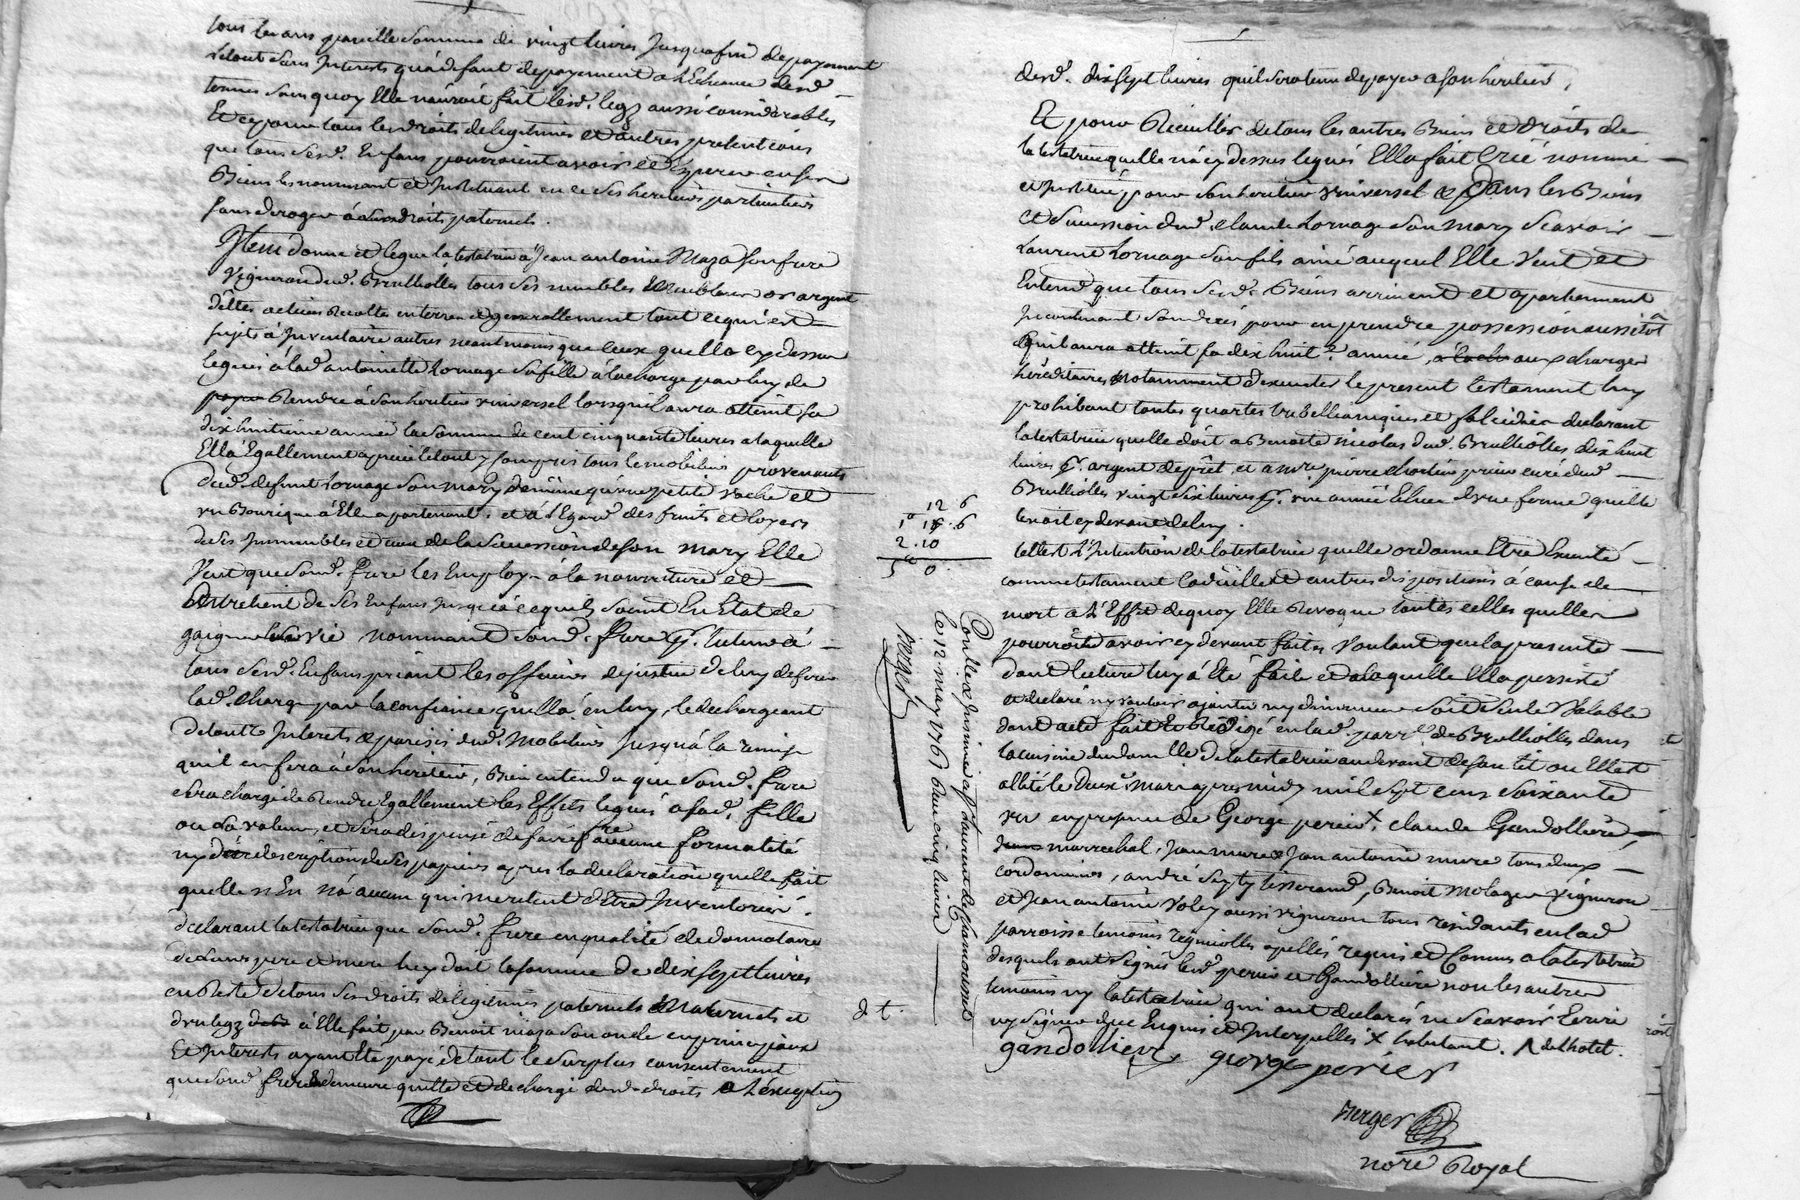 tous les ans pareille somme de vingt livres jusqua fin de payement
letout sans Interests qu'a defaut depayement a l'Echeance desd.
termes sans quoy Elle n'auroit fait lesd. legz aussi considerables
Et ce pour tous les droits de legitimes et autres pretentions
que tous sesd. Enfans pourroient avoir et Esperer en ses
Biens les nommant et Instituant en ce ses heritiers particuliers
sans deroger à Leurs droits paternels.
Item donne et legue la testatrice à Jean antoine Maza son frere
vigneron dud. Brulliolles tous ses meubles or argent
dettes actives Recolte en terre et generallement tout ce qui est
sujets à Inventaire autres neantmoins que ceux quelle a cy dessus
legués à lad. antoinette Lornage sa fille a la charge par luy de
Rendre à son heritier universel lorsquil aura atteint sa
dix huitieme année la somme de cent cinquante livres a laquelle
Ella Egallement letout y compris tous le mobiliers provenants
dud. defunt Lornage son mary de même qu'une petite vache et
un Bourique à Elle apartenant. et a l'Egard des fruits et loyers
de ses Immeubles et ceux de la Succession de son mary Elle
Veut que sond. frere les Employe à la nourriture et
Entretient de ses Enfans jusqu'à cequils soient En Etat de
gaigner vie nommant sond. frere p. tuteur à
tous sesd. Enfans priant les officiers de justice de luy deferer
lad. charge par la confiance quella en luy, le dechargeant
detoutte Interets dud. Mobiliers jusqu'à la remise
qu'il en fera à son heritier, Bien entendu que sond. frere
sera chargé de Rendre Egallement les Effets legués a sad. fille
ou la valeur, et sera dispensé defaire faire aucune formalité
ny description de ses papiers apres la declaration quelle fait
quelle n'En n'a aucun qui meritent d'Etre Inventoriés.
declarant la testatrice que sond. frere en qualité de donnataire
de Leurs pere et mere luy doit la somme de dix sept livres
en Reste de tous ses droits de legitimes paternels Maternels et
du legz à Elle fait par Benoit maza son oncle en principaux
Et Interets ayant Eté payé detout le surplus consentement
que sond. frere demeure quitte et dechargé desd. droits a l'exception
desd. dix sept livres quil sera tenu depayer a son heritier.
Et pour Recueillir detous les autres Biens et droits de
la testatrice quelle n'a cy dessus legués Ella fait Créé nommé
et Institué pour son heritier universel Dans les Biens
et Succession dud. claude Lornage son mary Scavoir
Laurent Lornage son fils ainé auquel Elle Veut et
Entend que tous sesd. Biens arrivent et apartiennent
Incontinant son deces pour en prendre possession aussitôt
qu'il aura atteint sa dix huit.e année, aux charges
héréditaires, Notamment dexecuter le present testament luy
prohibant toutes quartes trebellianiques et falcidies declarant
la testatrice quelle doit a Benoite nicolas dud. Brulliolles dix huit
livres p. argent deprêt, et a m.re pierre chortier prieur curé dud.
Brulliolles vingt six livres p. une année Echue d'une ferme quelle
tenoit cy devant deluy.
telle est l'Intention de la testatrice quelle ordonne Etre Executé
comme testament Codicille et autres dispositions à cause de
mort a l'Effet dequoy Elle Revoque toutes celles quelle
pourroit avoir cy devant faites Voulant que la presente
dont lecture luy à Eté faite et a laquelle Ella persisté
et declaré n'y vouloir ajouter ny diminuer Soit Seule Valable
dont acte fait et Redigé en lad. parr.e de Brulliolles dans
la cuisine du domicille de la testatrice au devant de son lit ou Elle est
allité le Deux.e Mars apres midy mil sept cens Soixante
un en presence de George perier X, claude Gandolliere
marrechal, Jean mure Jan antoine mure tous deux
cordonniers, andré Sayty tisserand, Benoit Molager Vigneron
et Jean antoine Voley aussi vigneron tous residants en lad.
parroisse temoins requis et Connus a la testatrice
desquels ont signés lesd. perier et Gandolliere non les autres
temoins ny la testatrice qui ont declarés ne Scavoir Ecrire
ny Signer de ce Enquis et Interpellés X habitant. de lhotel.
gandoliere george perier
Verger
no.re Royal
12 6
1 " 15 . 6
2 . 10
5 " 0
Con.lle & Insinué a St Laurent de Chamousset
le 12 may 1761 Reçu cinq livres
Verger
d t.